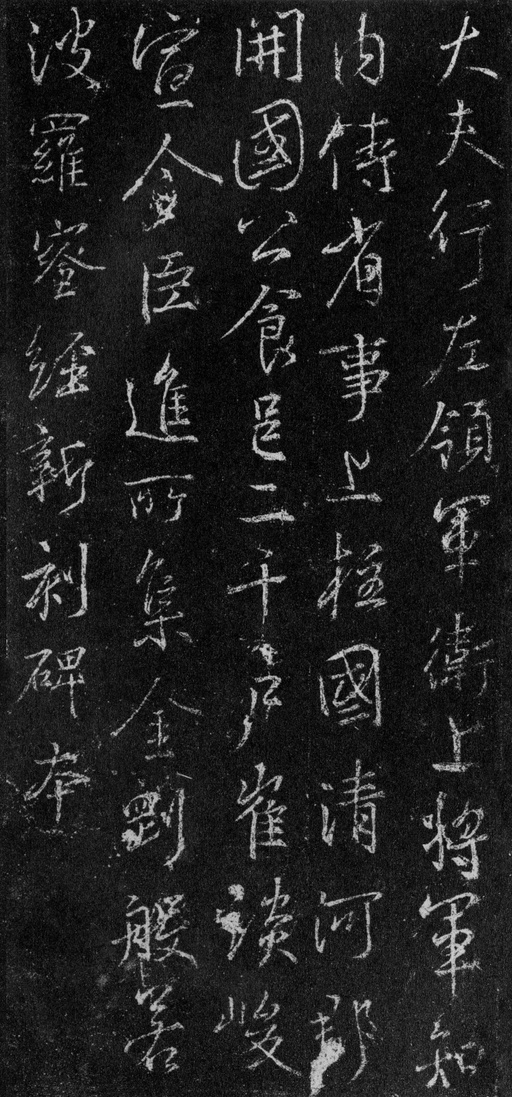 大夫行左領軍衛上將軍知
內侍省事上柱國清河郡
開國公食邑二千戶崔談峻
宣命臣進所集金剛般若
波羅蜜經新刻碑本